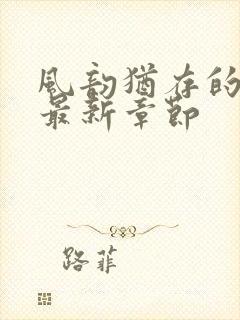 風韵猶存的
最新章節
路菲